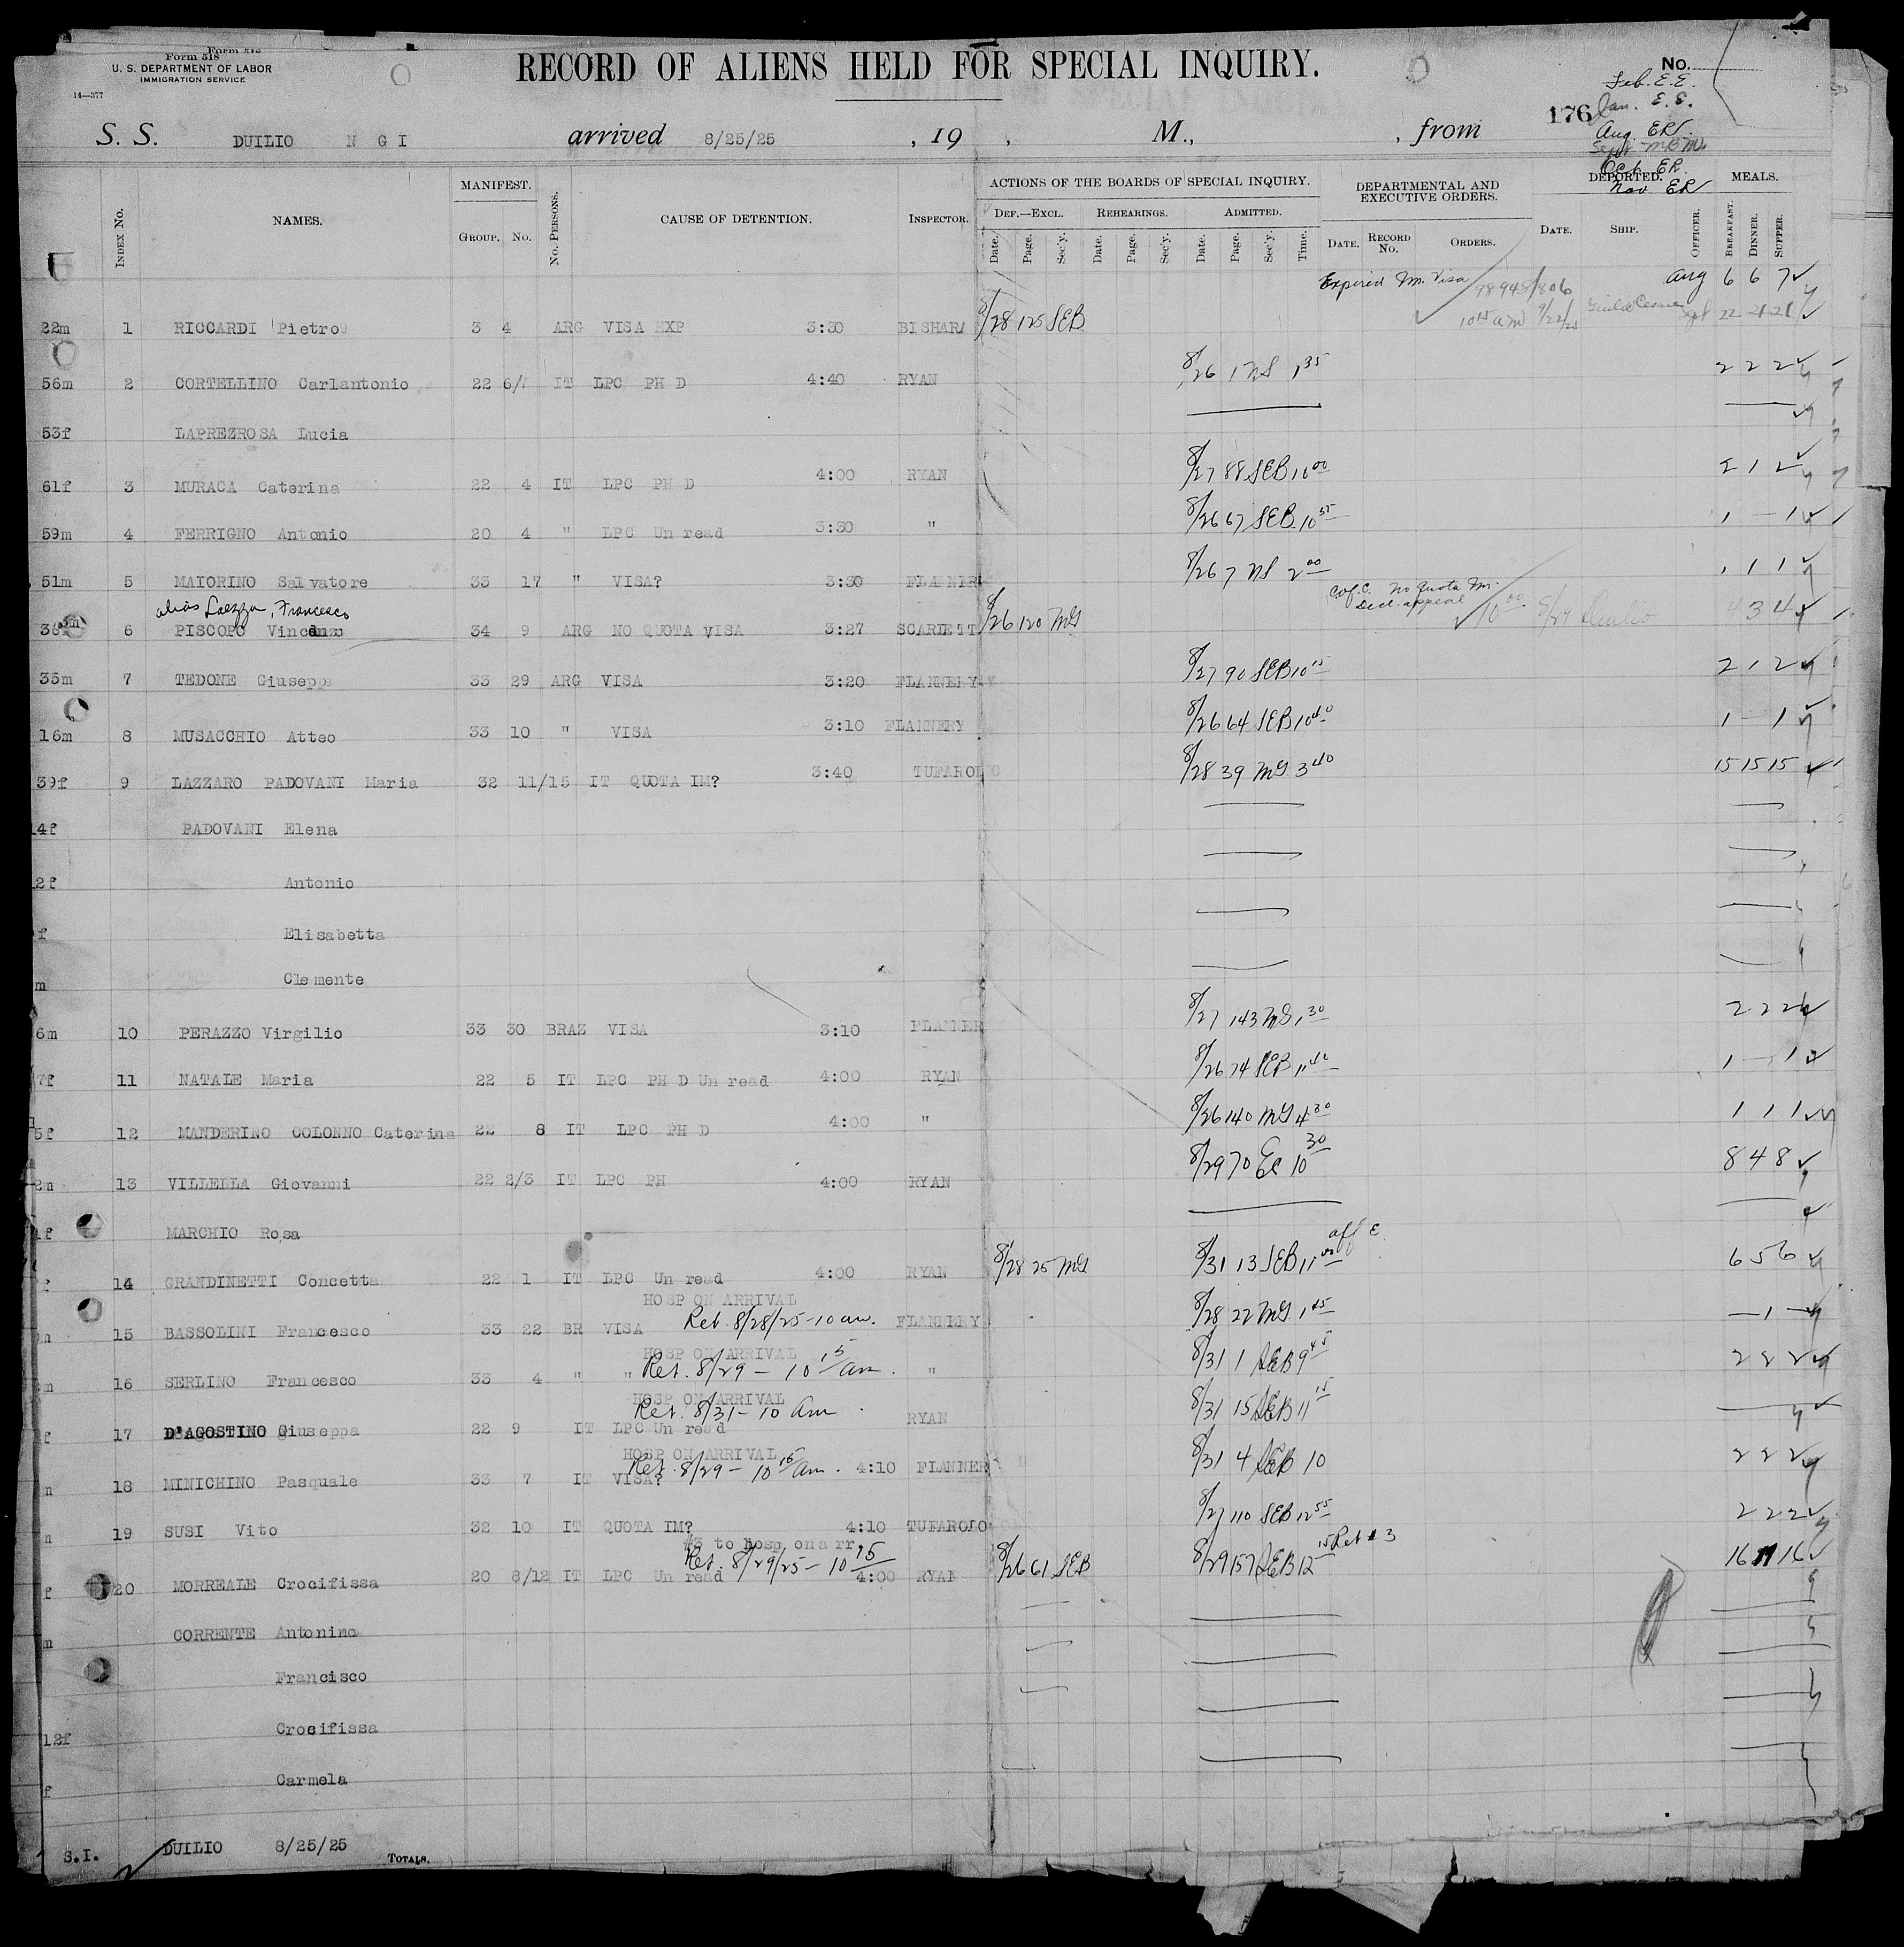 Form 518
U. S. DEPARTMENT OF LABOR
IMMIGRATION SERVICE
14—377
RECORD OF ALIENS HELD FOR SPECIAL INQUIRY.
No.
Feb. E.E.
Jan. E.S.
176
Aug. ER.
Sept. MBM
Oct. ER.
Nov ER
S. S. DUILIO N G I arrived 8/25/25 , 19 , M., , from
INDEX No. NAMES. MANIFEST. GROUP. No. No. PERSONS. CAUSE OF DETENTION. INSPECTOR. ACTIONS OF THE BOARDS OF SPECIAL INQUIRY. DEF.—EXCL. Date. Page. Sec'y. REHEARINGS. Date. Page. Sec'y. ADMITTED. Date. Page. Sec'y. Time. DEPARTMENTAL AND EXECUTIVE ORDERS. DATE. RECORD No. ORDERS. DEPORTED. DATE. SHIP. OFFICER. MEALS. BREAKFAST. DINNER. SUPPER.
Expired Im. Visa 98948/806 Aug 6 6 7
22m 1 RICCARDI Pietro 3 4 ARG VISA EXP 3:30 BISHARA 8/28 125 SEB 10 15 am 9/22/25 Sept 22 21 21
56m 2 CORTELLINO Carlantonio 22 6/7 IT LPC PH D 4:40 RYAN 8/26 1 NS 1 35 2 2 2
53f LAPREZROSA Lucia
61f 3 MURACA Caterina 22 4 IT LPC PH D 4:00 RYAN 8/27 88 SEB 10 00 2 1 2
59m 4 FERRIGNO Antonio 20 4 " LPC Un read 3:30 " 8/26 67 SEB 10 35 1 — 1
51m 5 MAIORINO Salvatore 33 17 " VISA? 3:30 FLANNERY 8/26 7 NS 2 00 1 1 1
alias Laezza, Francesco
No Quota Im.
Decl. appeal
6 PISCOPO Vincenzo 34 9 ARG NO QUOTA VISA 3:27 SCARLETT 8/26 120 MG 10 00 8/29 Duilio 4 3 4
35m 7 TEDONE Giuseppe 33 29 ARG VISA 3:20 FLANNERY 8/27 90 SEB 10 15 2 1 2
16m 8 MUSACCHIO Atteo 33 10 " VISA 3:10 FLANNERY 8/26 64 SEB 10 40 1 — 1
39f 9 LAZZARO PADOVANI Maria 32 11/15 IT QUOTA IM? 3:40 TUFAROLO 8/28 39 MG 3 40 15 15 15
4f PADOVANI Elena
2f Antonio
f Elisabetta
m Clemente
6m 10 PERAZZO Virgilio 33 30 BRAZ VISA 3:10 FLANNER 8/27 143 MG 1 30 2 2 2
7f 11 NATALE Maria 22 5 IT LPC PH D Un read 4:00 RYAN 8/26 74 SEB 11 40 1 — 1
5f 12 MANDERINO COLONNO Caterina 22 8 IT LPC PH D 4:00 " 8/26 140 MG 4 30 1 1 1
2m 13 VILLELLA Giovanni 22 2/3 IT LPC PH 4:00 RYAN 8/29 70 EC 10 30 8 4 8
1f MARCHIO Rosa
f 14 GRANDINETTI Concetta 22 1 IT LPC Un read 4:00 RYAN 8/28 25 MG 8/31 13 SEB 11 00 6 5 6
HOSP ON ARRIVAL
m 15 BASSOLINI Francesco 33 22 BR VISA Ret. 8/28/25-10 am. FLANNERY 8/28 22 MG 1 45 — 1 —
HOSP ON ARRIVAL
m 16 SERLINO Francesco 33 4 " " Ret. 8/29 — 10 15 am. " 8/31 1 SEB 9 45 2 2 2
HOSP ON ARRIVAL
Ret. 8/31 — 10 am
f 17 D'AGOSTINO Giuseppa 22 9 IT LPC Un read RYAN 8/31 15 SEB 11 15
HOSP ON ARRIVAL
Ret. 8/29 — 10 15 am.
m 18 MINICHINO Pasquale 33 7 IT VISA? 4:10 FLANNER 8/31 4 SEB 10 2 2 2
m 19 SUSI Vito 32 10 IT QUOTA IM? 4:10 TUFAROLO 8/27 110 SEB 12 55 2 2 2
#3 to hosp on arr.
Ret. 8/29/25 — 10 15
f 20 MORREALE Crocifissa 20 8/12 IT LPC Un read 4:00 RYAN 8/26 61 SEB 8/29 157 SEB 12 15 Ret #3 16 11 16
m CORRENTE Antonino
Francisco
12f Crocifissa
f Carmela
S.I. DUILIO 8/25/25 TOTALS.